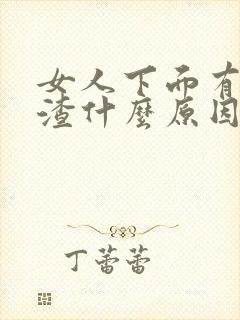 女人下面有
渣什麼原因
丁蕾蕾